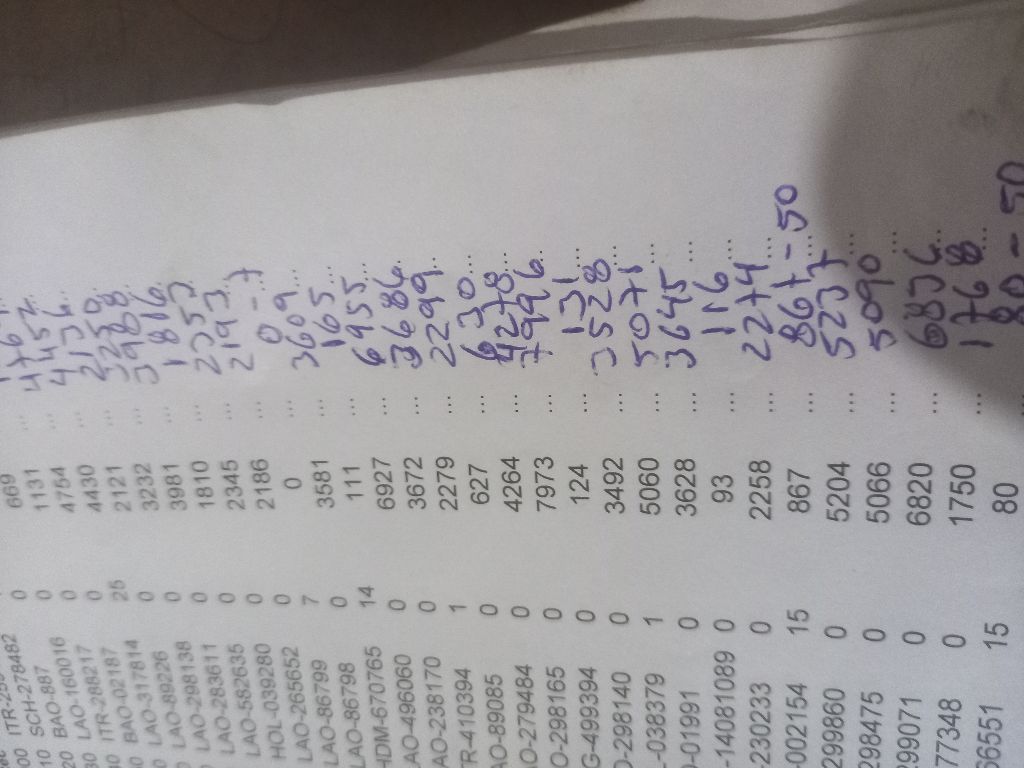 0 869
ITR-25 0 1131
00 SCH-278482 0 4754 ... 476
10 BAO-887 0 4430 ... 4452
20 LAO-160016 25 2121 ... 2136
30 ITR-288217 0 3232 ... 3250
40 BAO-02187 0 3981 ... 3988
LAO-317814 0 1810 ... 1816
LAO-89226 0 2345 ... 2353
LAO-298138 0 2186 ... 2193
LAO-283611 0 0 ... 0-7
LAO-582635 0 3581 ... 3609
HOL-039280 7 111 ... 165
LAO-265652 0 6927 ... 6955
LAO-86799 14 3672 ... 3686
LAO-86798 0 2279 ... 2299
HDM-670765 0 627 ... 630
AO-496060 1 4264 ... 4278
AO-238170 0 7973 ... 7996
TR-410394 0 124 ... 131
AO-89085 0 3492 ... 3528
O-279484 0 5060 ... 5071
O-298165 0 3628 ... 3645
G-499394 1 93 ... 116
O-298140 0 2258 ... 2274
-038379 0 867 ... 867-50
-01991 0 5204 ... 5237
-14081089 15 5066 ... 5090
230233 0 6820 ... 6836
002154 0 1750 ... 1768
299860 0 80 ... 80-50
298475 0
99071 15
77348
66551